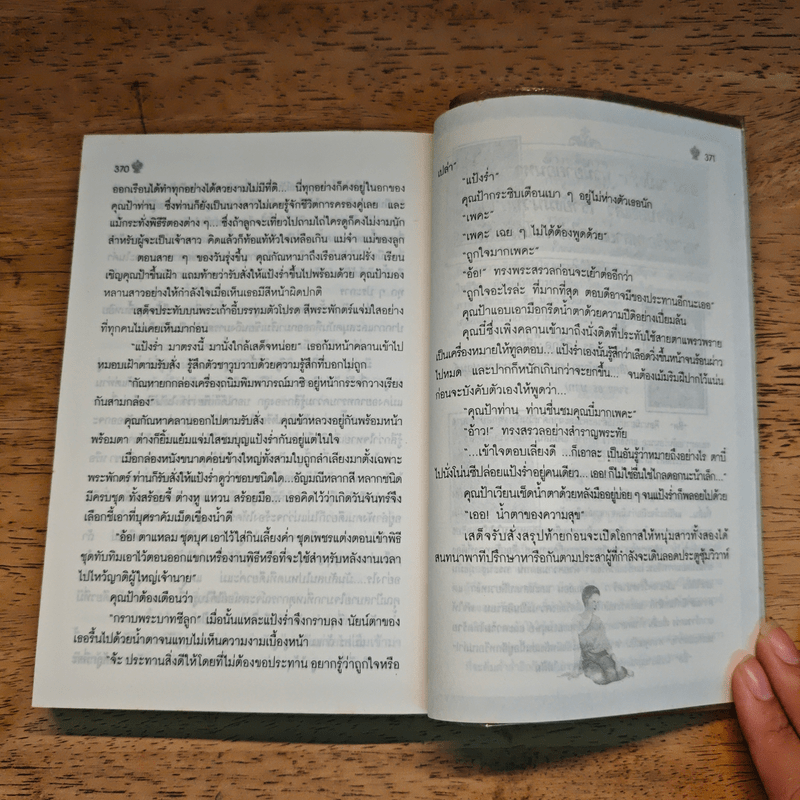 370
ออกเรือนได้ทำทุกอย่างได้สวยงามไม่มีที่ติ... นี่ทุกอย่างก็คงอยู่ในอกของ
คุณป้าท่าน ซึ่งท่านก็ยังเป็นนางสาวไม่เคยรู้จักชีวิตการครองคู่เลย และ
แม้กระทั่งพิธีรีตองต่าง ๆ... ซึ่งถ้าลูกจะเที่ยวไปถามไถ่ใครดูก็คงไม่งามนัก
สำหรับผู้จะเป็นเจ้าสาว คิดแล้วก็ท้อแท้หัวใจเหลือเกิน แม่จ๋า แม่ของลูก
ตอนสาย ๆ ของวันรุ่งขึ้น คุณกัณหามาถึงเรือนสวนฝรั่ง เรียน
เชิญคุณป้าขึ้นเฝ้า แถมท้ายว่ารับสั่งให้แป้งร่ำขึ้นไปพร้อมด้วย คุณป้ามอง
หลานสาวอย่างให้กำลังใจเมื่อเห็นเธอมีสีหน้าผิดปกติ
เสด็จประทับบนพระเก้าอี้บรรทมตัวโปรด สีพระพักตร์แจ่มใสอย่าง
ที่ทุกคนไม่เคยเห็นมาก่อน
"แป้งร่ำ มาตรงนี้ มานั่งใกล้เสด็จหน่อย" เธอก้มหน้าคลานเข้าไป
หมอบเฝ้าตามรับสั่ง รู้สึกตัวชาวูบวาบด้วยความรู้สึกที่บอกไม่ถูก
"กัณหายกกล่องเครื่องถนิมพิมพาภรณ์มาซิ อยู่หน้ากระจกวางเรียง
กันสามกล่อง"
คุณกัณหาคลานออกไปตามรับสั่ง คุณข้าหลวงอยู่กันพร้อมหน้า
พร้อมตา ต่างก็ยิ้มแย้มแจ่มใสชมบุญแป้งร่ำกันอยู่แต่ในใจ
เมื่อกล่องหนังขนาดค่อนข้างใหญ่ทั้งสามใบถูกลำเลียงมาตั้งเฉพาะ
พระพักตร์ ท่านก็รับสั่งให้แป้งร่ำดูว่าชอบชนิดใด...อัญมณีหลากสี หลากชนิด
มีครบชุด ทั้งสร้อยจี้ ต่างหู แหวน สร้อยมือ... เธอคิดไว้ว่าเกิดวันจันทร์จึง
เลือกชี้เอาที่บุศราคัมเม็ดเขื่องน้ำดี
"อ้อ! ตาแหลม ชุดบุศ เอาไว้ใส่กินเลี้ยงค่ำ ชุดเพชรแต่งตอนเข้าพิธี
ชุดทับทิมเอาไว้ตอนออกแขกเหรื่องานพิธีหรือที่จะใช้สำหรับหลังงานเวลา
ไปไหว้ญาติผู้ใหญ่เจ้านาย"
คุณป้าต้องเตือนว่า
"กราบพระบาทซีลูก" เมื่อนั้นแหละแป้งร่ำจึงกราบลง นัยน์ตาของ
เธอรื้นไปด้วยน้ำตาจนแทบไม่เห็นความงามเบื้องหน้า
"จ้ะ ประทานสิ่งดีให้โดยที่ไม่ต้องขอประทาน อยากรู้ว่าถูกใจหรือ
371
เปล่า"
"แป้งร่ำ"
คุณป้ากระซิบเตือนเบา ๆ อยู่ไม่ห่างตัวเธอนัก
"เพคะ"
"เพคะ เฉย ๆ ไม่ได้ต้องพูดด้วย"
"ถูกใจมากเพคะ"
"อ้อ!" ทรงพระสรวลก่อนจะเย้าต่ออีกว่า
"ถูกใจอะไรล่ะ ที่มากที่สุด ตอบดีอาจมีของประทานอีกนะเออ"
คุณป้าแอบเอามือกรีดน้ำตาด้วยความปีติอย่างเปี่ยมล้น
คุณบี๋ซึ่งเพิ่งคลานเข้ามาถึงนั่งติดที่ประทับใช้สายตาแพรวพราย
เป็นเครื่องหมายให้ทูลตอบ... แป้งร่ำเองนั้นรู้สึกว่าเลือดวิ่งขึ้นหน้าจนร้อนผ่าว
ไปหมด และปากก็หนักเกินกว่าจะยกขึ้น... จนต้องเม้มริมฝีปากไว้แน่น
ก่อนจะบังคับตัวเองให้พูดว่า...
"คุณป้าท่าน ท่านชื่นชมคุณบี๋มากเพคะ"
"อ้าว!" ทรงสรวลอย่างสำราญพระทัย
"...เข้าใจตอบเลี่ยงดี ...ก็เอาละ เป็นอันรู้ว่าหมายถึงอย่างไร ตาบี๋
ไปนั่งโน่นนซีปล่อยแป้งร่ำอยู่คนเดียว...เออ! ก็ไม่ใช่อื่นใช่ไกลดอกนะน้าเล็ก..."
คุณป้าเวียนเช็ดน้ำตาด้วยหลังมืออยู่บ่อย ๆ จนแป้งร่ำก็พลอยไปด้วย
"เออ! น้ำตาของความสุข"
เสด็จรับสั่งสรุปท้ายก่อนจะเปิดโอกาสให้หนุ่มสาวทั้งสองได้
สนทนาพาทีปรึกษาหารือกันตามประสาผู้ที่กำลังจะเดินลอดประตูซุ้มวิวาห์